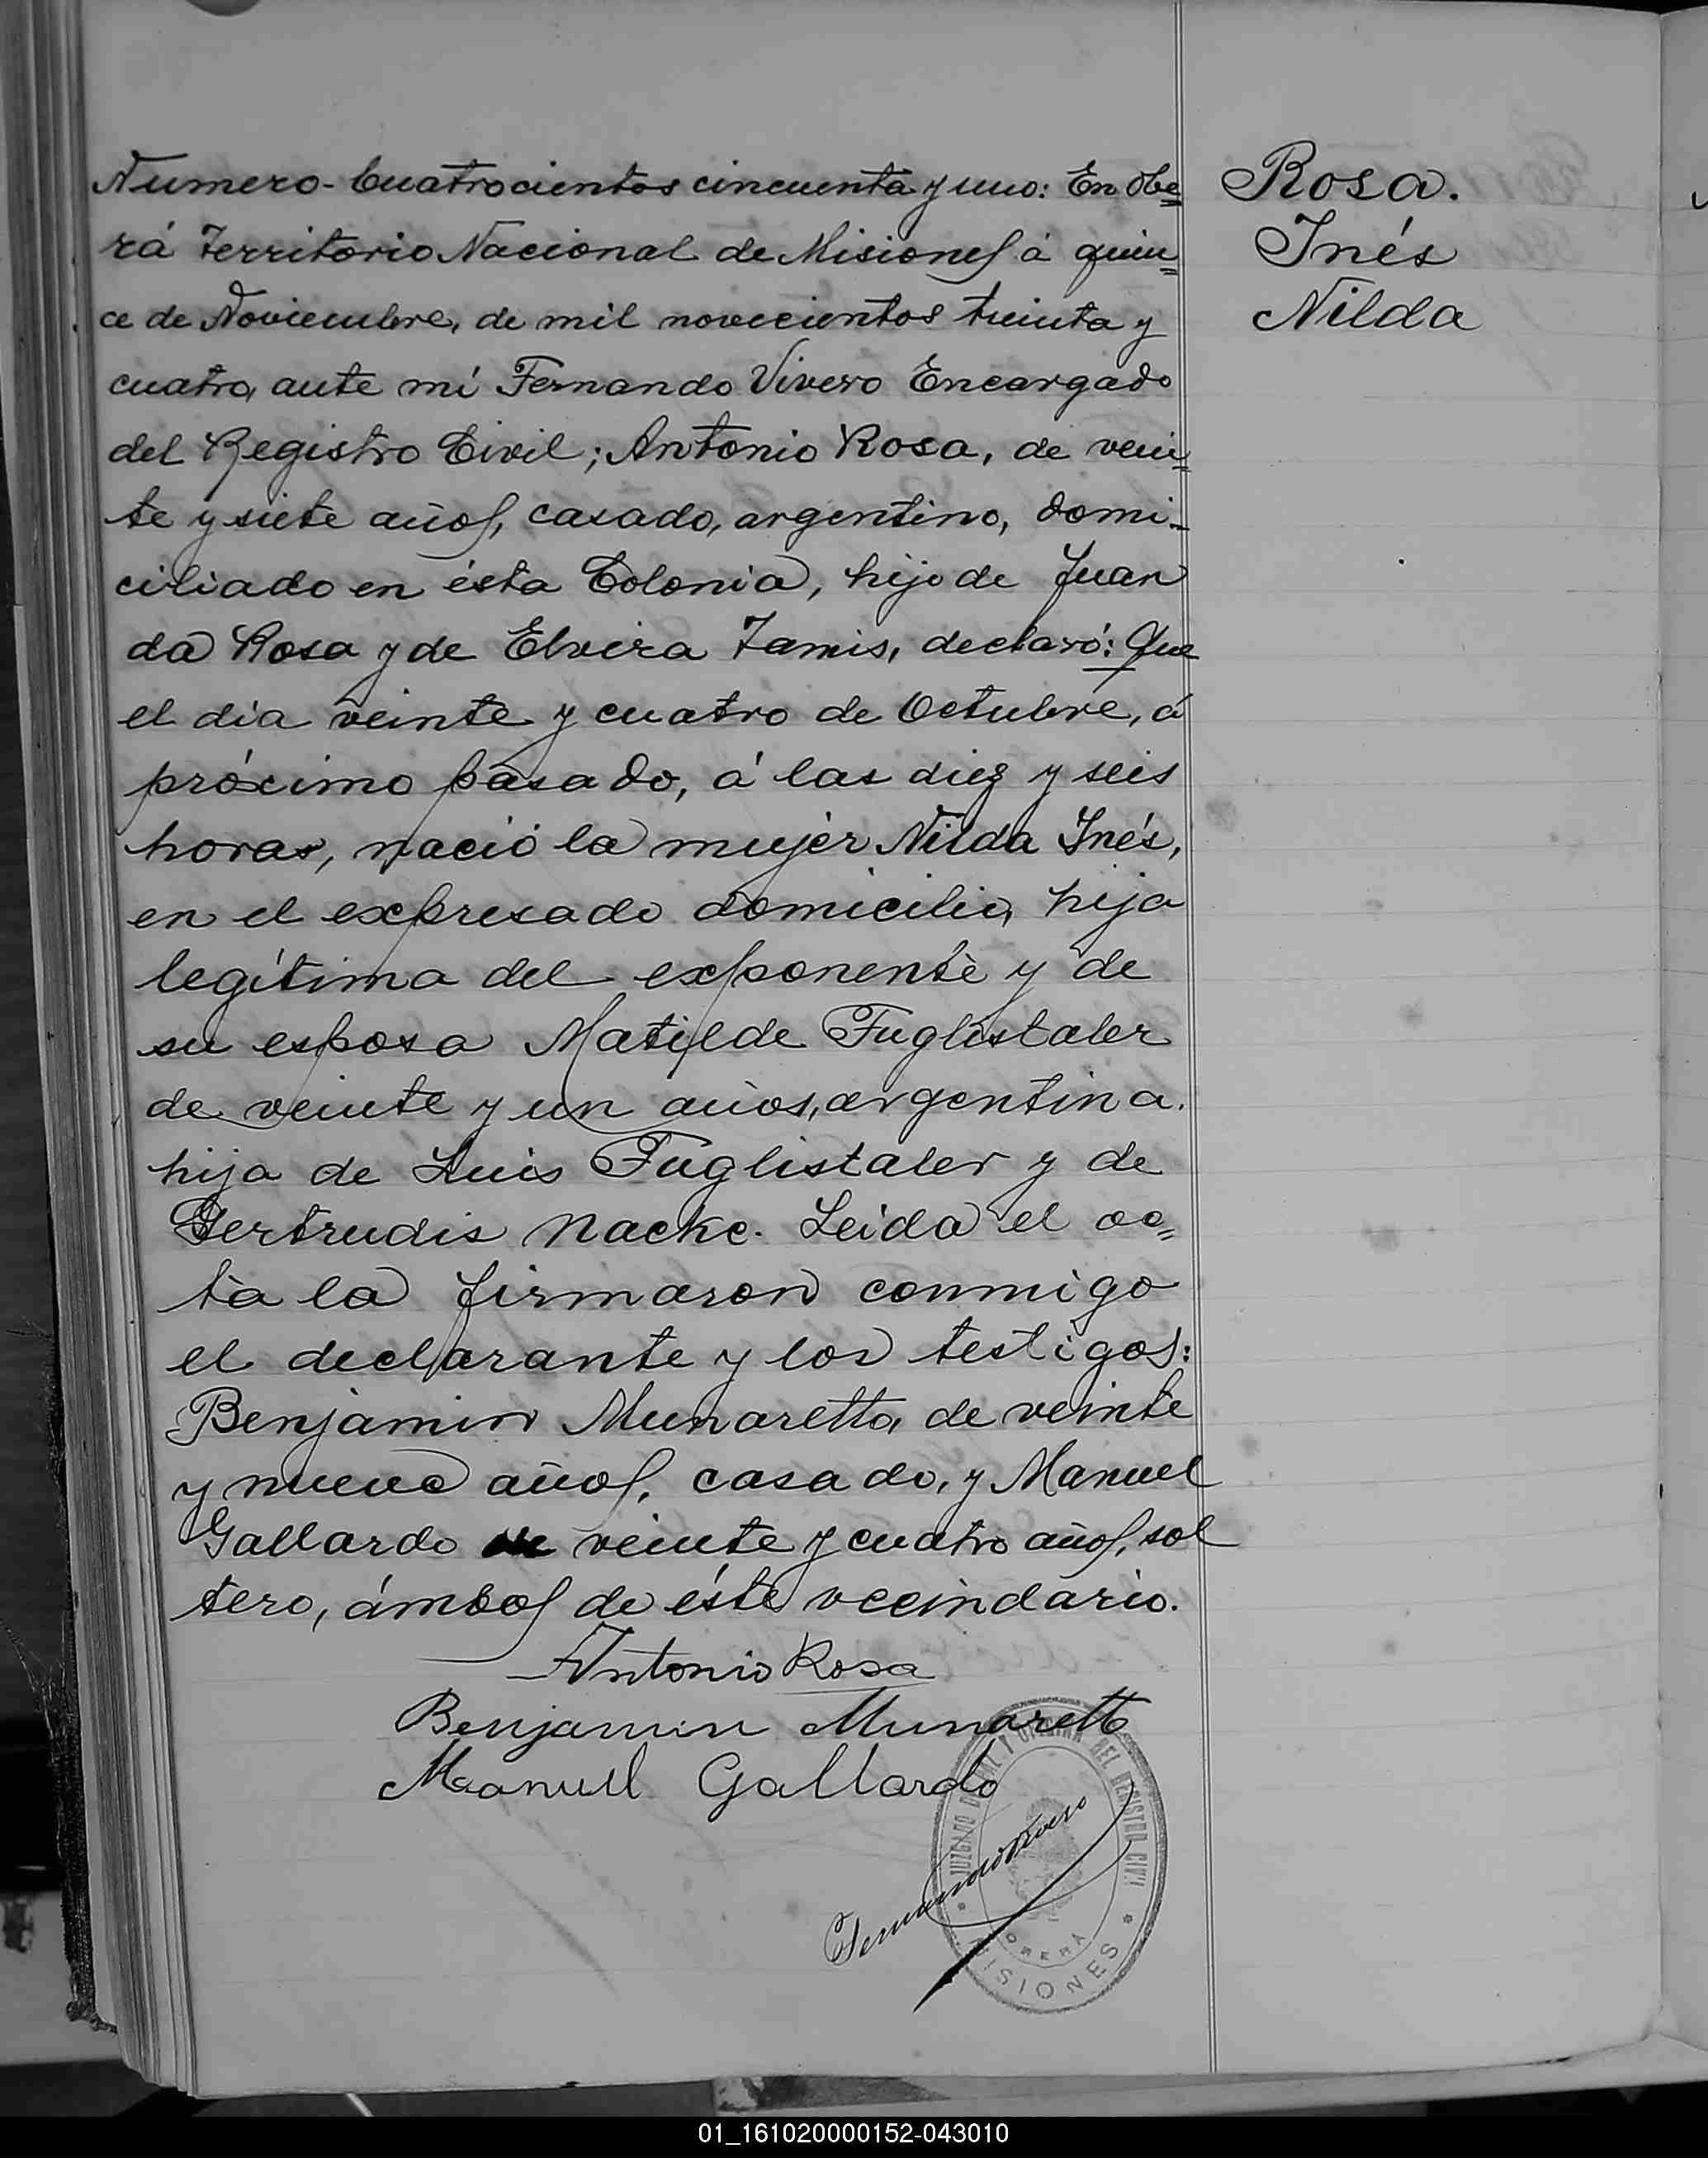 Numero-Cuatrocientos cincuenta y uno: En Obe=
rá Territorio Nacional de Misiones á quin=
ce de Noviembre, de mil novecientos treinta y
cuatro, ante mí Fernando Vivero Encargado
del Registro Civil; Antonio Rosa, de vein=
te y siete años, casado, argentino, domi-
ciliado en ésta Colonia, hijo de Juan
da Rosa y de Elvira Tamis, declaró: Que
el dia veinte y cuatro de Octubre, á
próximo pasado, á las diez y seis
horas, nació la mujer Nilda Inés,
en el expresado domicilio, hija
legítima del exponente y de
su esposa Matilde Fuglistaler
de veinte y un años, argentina.
hija de Luis Fuglistaler y de
Gertrudis Nacke. Leida el ac=
ta la firmaron conmigo
el declarante y los testigos:
Benjamin Munaretto, de veinte
y nueve años, casado, y Manuel
Gallardo de veinte y cuatro años, sol
tero, ámbos de éste vecindario.
Antonio Rosa
Benjamin Munaretto
Manuel Gallardo
Fernando Vivero
JUZGADO DE PAZ Y OFICINA DEL REGISTRO CIVIL
OBERÁ
* MISIONES *
Rosa.
Inés
Nilda
01_161020000152-043010